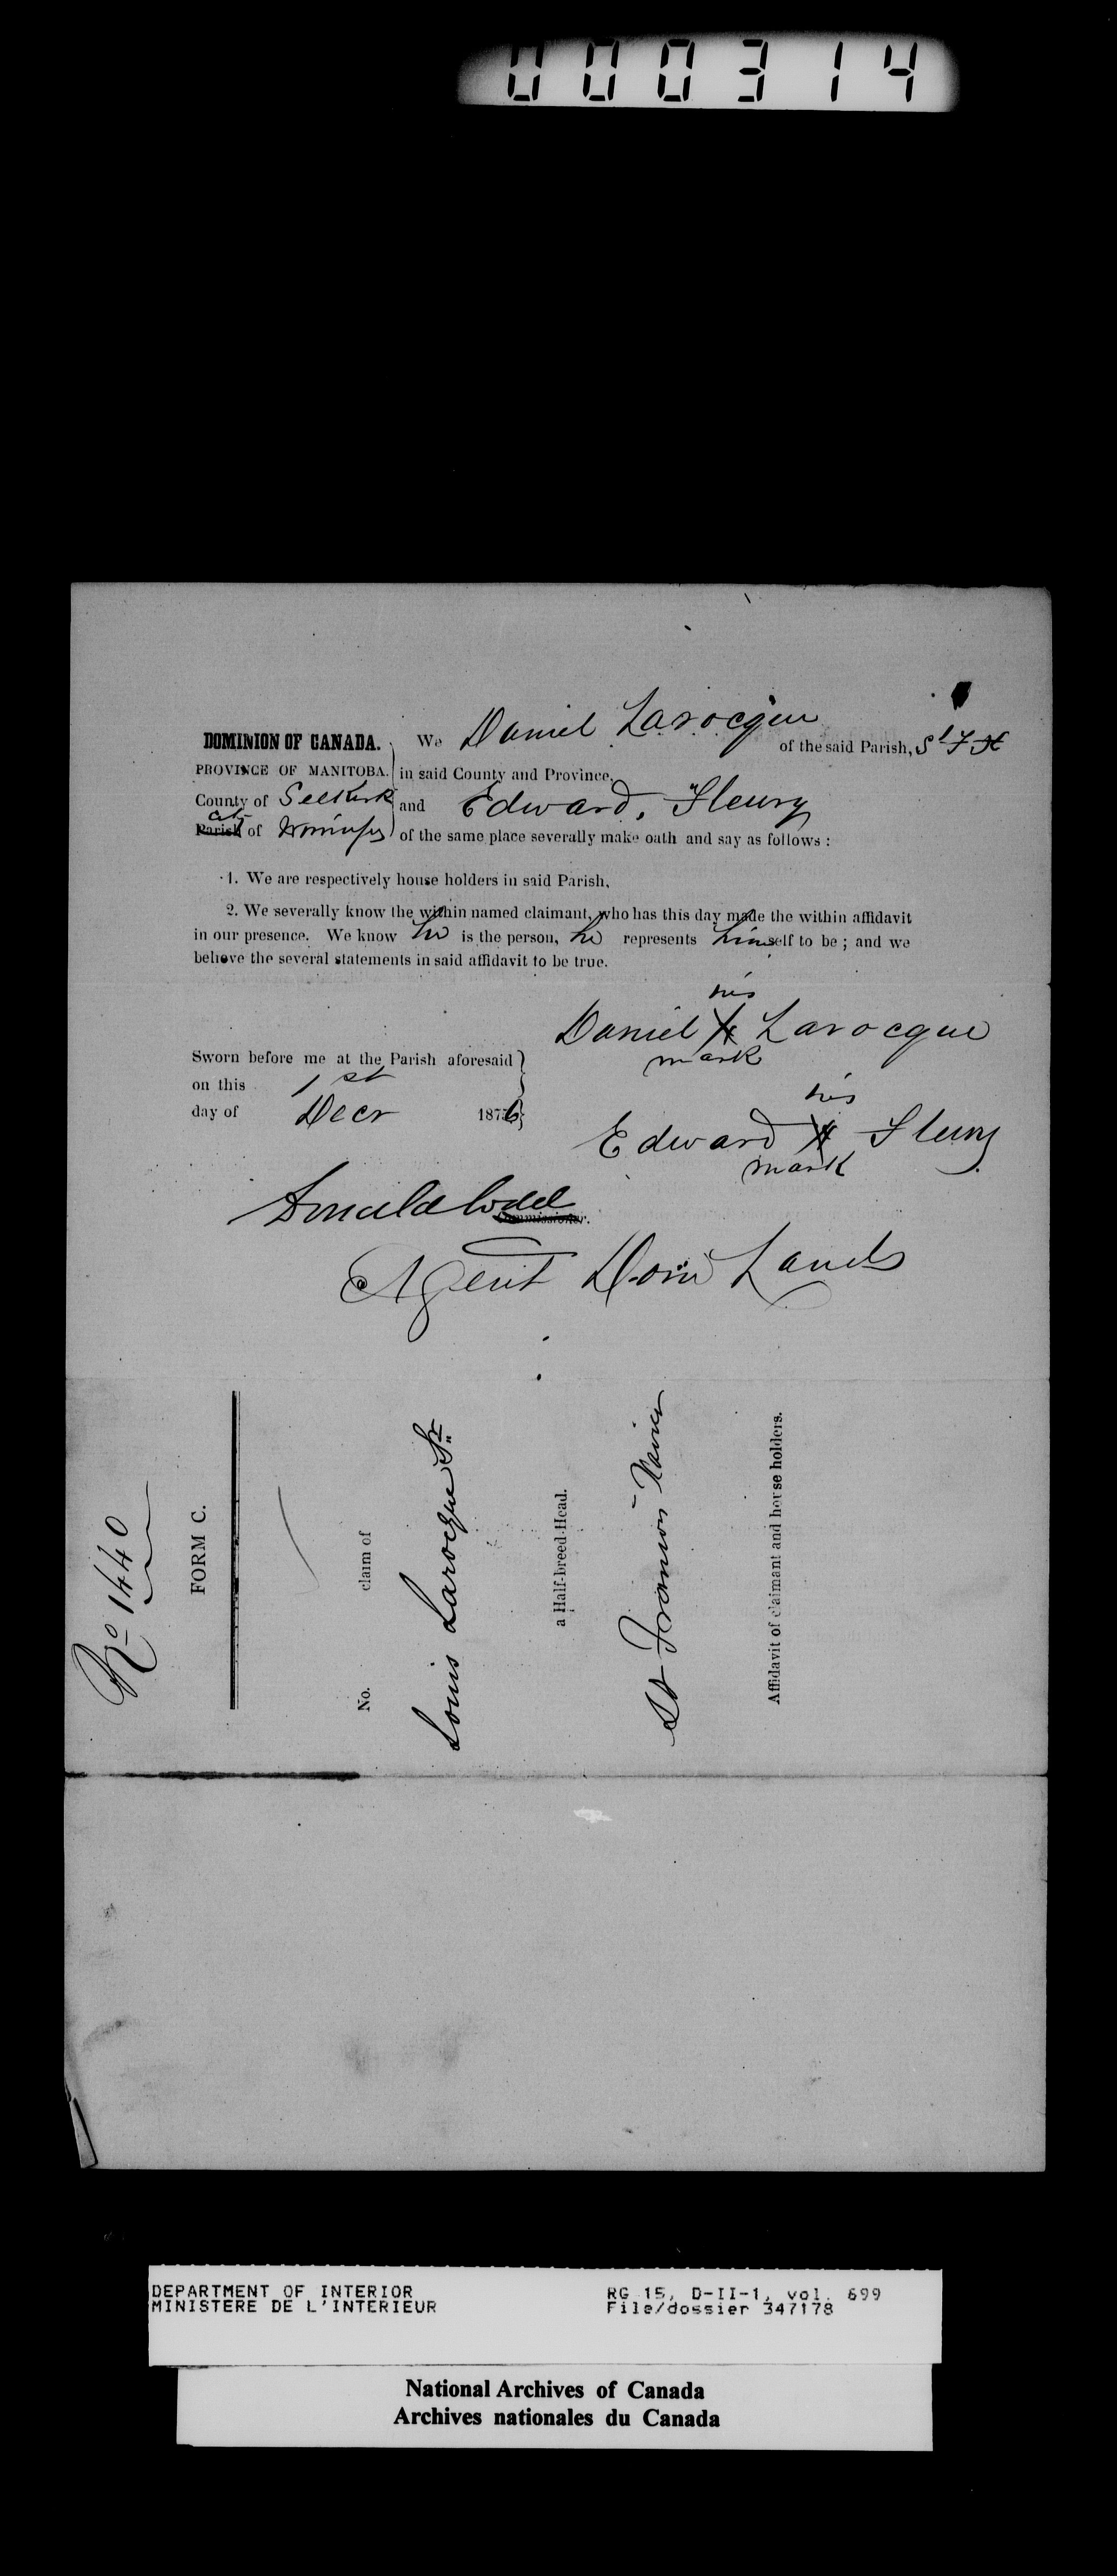 000314
DOMINION OF CANADA. We Daniel Larocque of the said Parish, St F X
PROVINCE OF MANITOBA. in said County and Province,
County of Selkirk and Edward, Fleury
city
Parish of Winnipeg of the same place severally make oath and say as follows :
1. We are respectively house holders in said Parish,
2. We severally know the within named claimant, who has this day made the within affidavit
in our presence. We know he is the person, he represents himself to be ; and we
believe the several statements in said affidavit to be true.
his
Daniel X Larocque
mark
Sworn before me at the Parish aforesaid
on this 1st
day of Decr 1876
his
Edward X Fleury
mark
Donald Codd
Commissioner.
Agent Dom Lands
No 1440
FORM C.
No. claim of
Louis Larocque Sr
a Half-breed-Head.
St Francois-Xavier
Affidavit of claimant and house holders.
DEPARTMENT OF INTERIOR RG 15, D-II-1, vol. 699
MINISTERE DE L'INTERIEUR File/dossier 347178
National Archives of Canada
Archives nationales du Canada